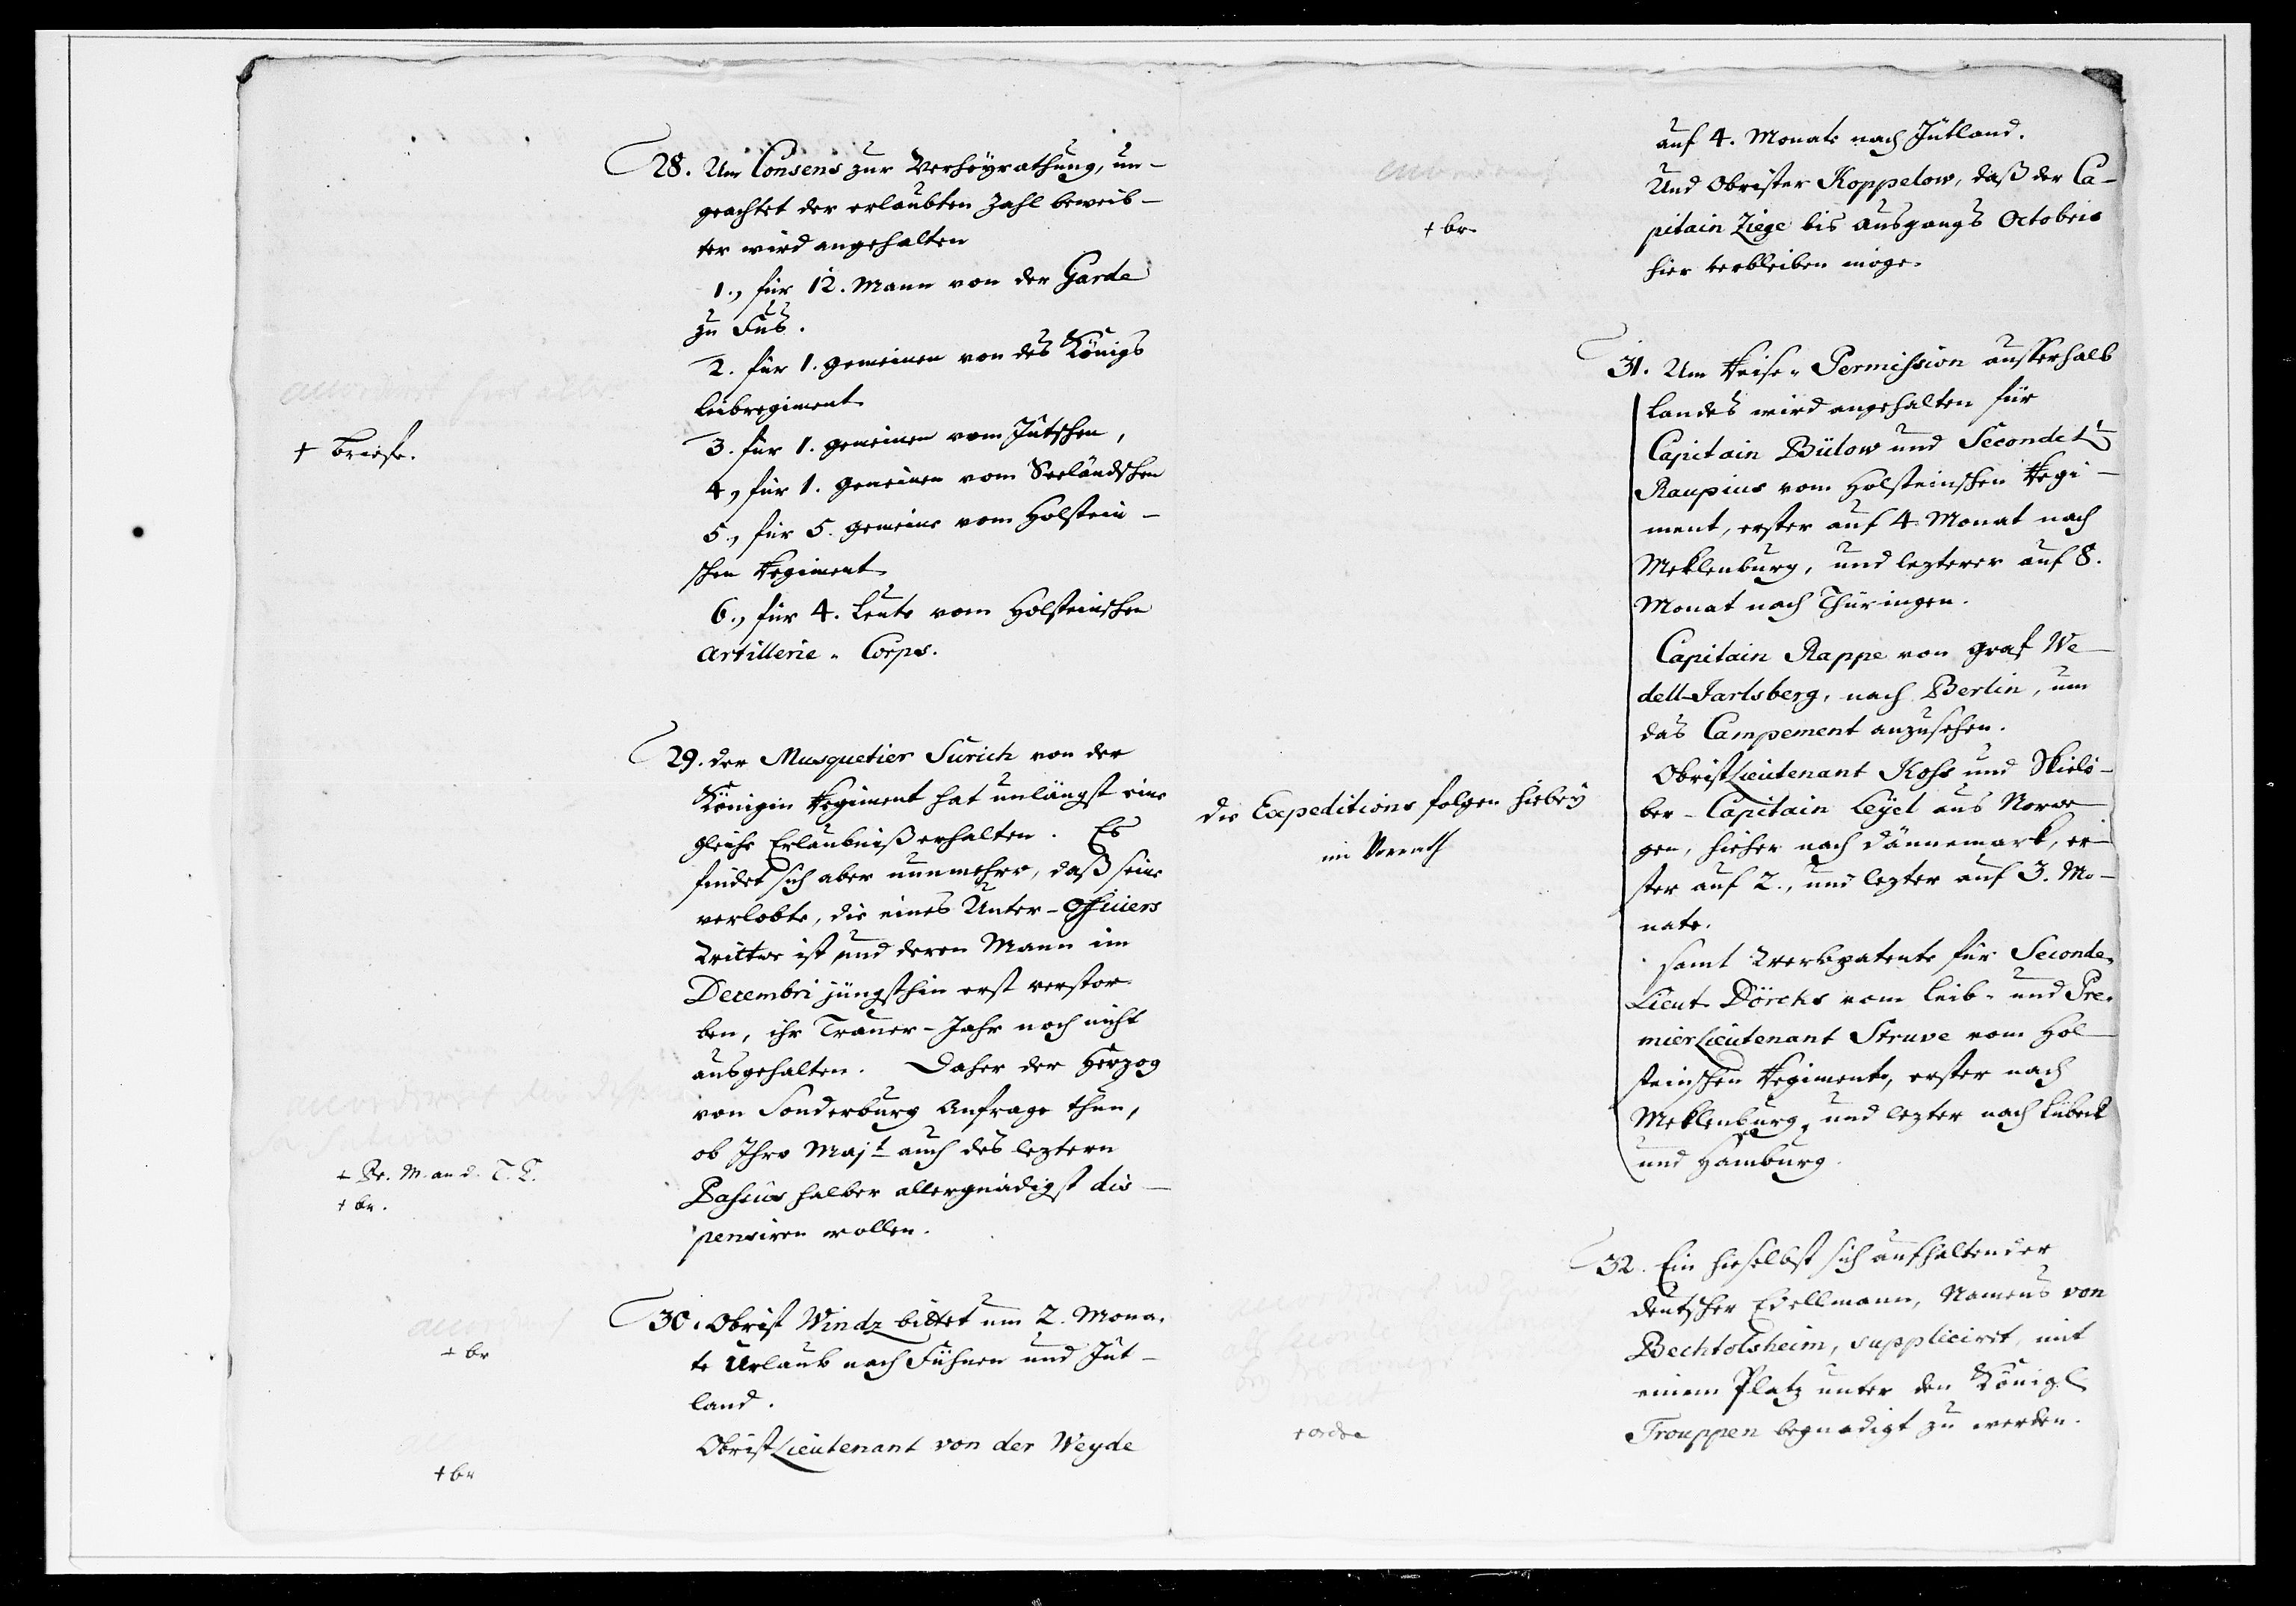 28. Um Consens zur Verheyrathung, un-
geachtet der erlaubten Zahl beweib-
ter wird angehalten
1., für 12. Mann von der Garde
zu Fus.
2. für 1. gemeinen von des Königs
Leibregiment
3. für 1. gemeinen vom Jütschen,
4., für 1. gemeinen vom Seeländschen
5., für 5. gemeine vom Holstein-
schen Regiment
6., für 4. Leute vom Holsteinschen
Artillerie-Corps.
accordiret für alle
+ Briefe.
29. der Musquetier Surich von der
Königin Regiment hat unlängst eine
gleiche Erlaubniß erhalten. Es
findet sich aber nunmehro, daß seine
verlobte, die eines Unter-Officiers
Wittwe ist und deren Mann im
Decembri jüngsthin erst verstor-
ben, ihr Trauer-Jahr noch nicht
ausgehalten. Daher der Herzog
von Sonderburg Anfrage thun,
ob Ihro Majt auch des leztern
Passus halber allergnädigst dis-
pensiren wollen.
accordiret die dispen
sation
+ Pr. M. an d. T. C.
+ br.
30. Obrist Windz bittet um 2. Mona-
te Urlaub nach Fühnen und Jüt-
land.
ObristLieutenant von der Weyde
accordirt
+ br
+ br
auf 4. Monate nach Jütland.
Und Obrister Koppelow, daß der Ca-
pitain Ziege bis Ausgangs Octobris
hier verbleiben möge.
accordirt
+ br.
31. Um Reise-Permission ausserhalb
Landes wird angehalten für
Capitain Bülow und Secondelt
Raupius vom Holsteinschen Regi-
ment, erster auf 4. Monat nach
Meklenburg, und lezterer auf 8.
Monat nach Thüringen.
Capitain Rappe von Graf We-
dell-Jarlsberg, nach Berlin, um
das Campement anzusehen.
ObristLieutenant Koss und Skielö-
ber-Capitain Leyel aus Norwe-
gen, hieher nach Dännemark, er-
ster auf 2., und lezter auf 3. Mo-
nate.
samt Werbpatente für Seconde-
Lieut. Dörcks vom Leib- und Pre-
mierLieutenant Struve vom Hol-
steinschen Regimente, erster nach
Meklenburg, und lezter nach Lübeck
und Hamburg.
die Expeditions folgen hiebey
im Vorrath
32. Ein hieselbst sich aufhaltender
deutscher Edellmann, Namens von
Bechtolsheim, suppliciret, mit
einem Platz unter den Königl
Trouppen begnadigt zu werden.
+ ordre